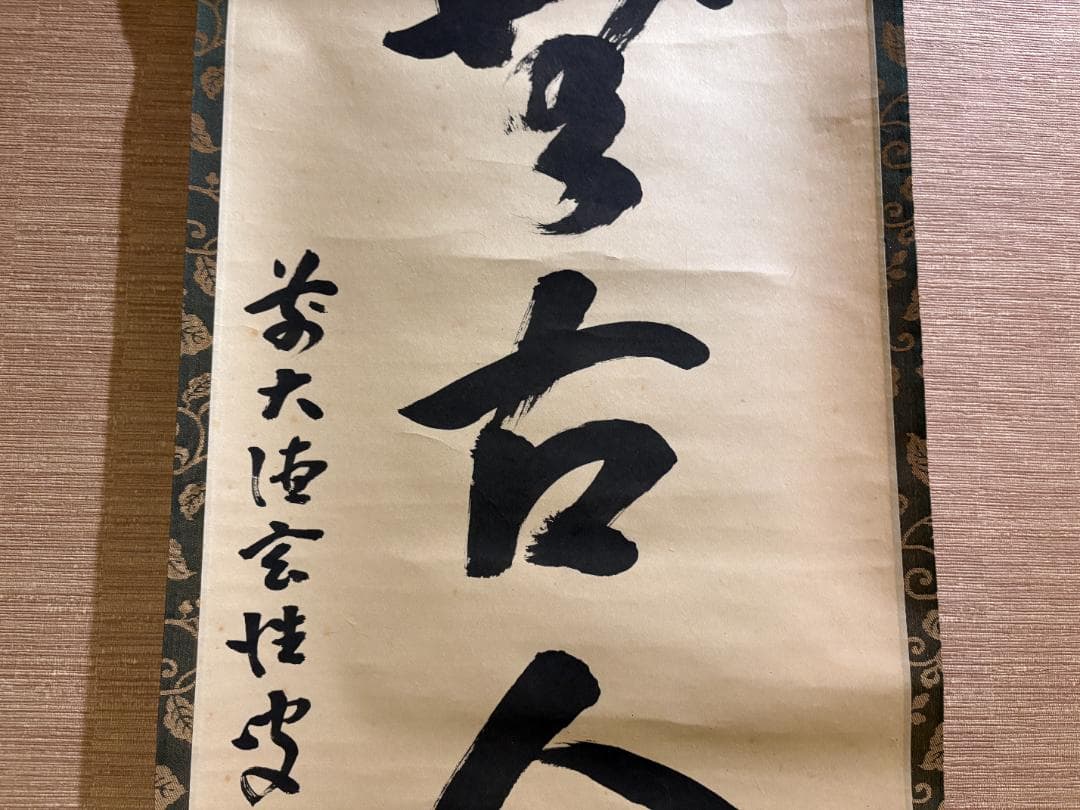 古人
前大徳玄性叟